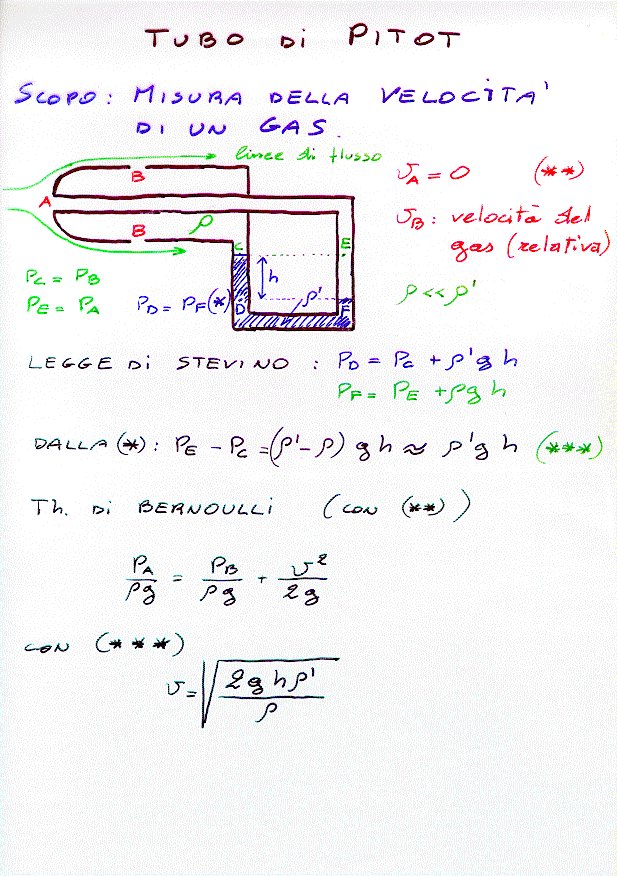 TUBO DI PITOT
SCOPO: MISURA DELLA VELOCITA'
DI UN GAS.
linee di flusso
B
A
ρ
B
C
E
h
D
F
ρ'
v_A = 0 (**)
v_B: velocità del
gas (relativa)
ρ << ρ'
P_C = P_B
P_E = P_A P_D = P_F (*)
LEGGE DI STEVINO : P_D = P_C + ρ'gh
P_F = P_E + ρgh
DALLA (*): P_E - P_C = (ρ' - ρ) gh ≈ ρ'gh (***)
Th. DI BERNOULLI (CON (**))
P_A/ρg = P_B/ρg + v²/2g
CON (***)
v = √(2ghρ'/ρ)